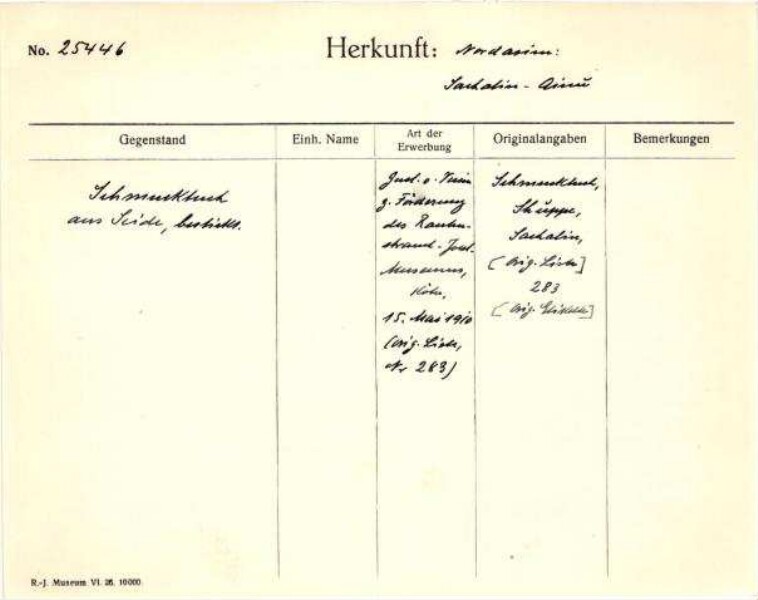 No. 25446
Herkunft: Nordasien:
Sachalin - Ainu
Gegenstand
Einh. Name
Art der
Erwerbung
Originalangaben
Bemerkungen
Schmucktuch
aus Seide, bestickt.
v. Verein
z. Förderung
des Rauten-
strauch-Joest-
Museums,
Köln,
15. Mai 1910
(Orig. Liste,
Nr 283)
Schmucktuch,
Sachalin,
[Orig. Liste]
283
[Orig. Etikette]
R.-J. Museum VI. 26. 10000.